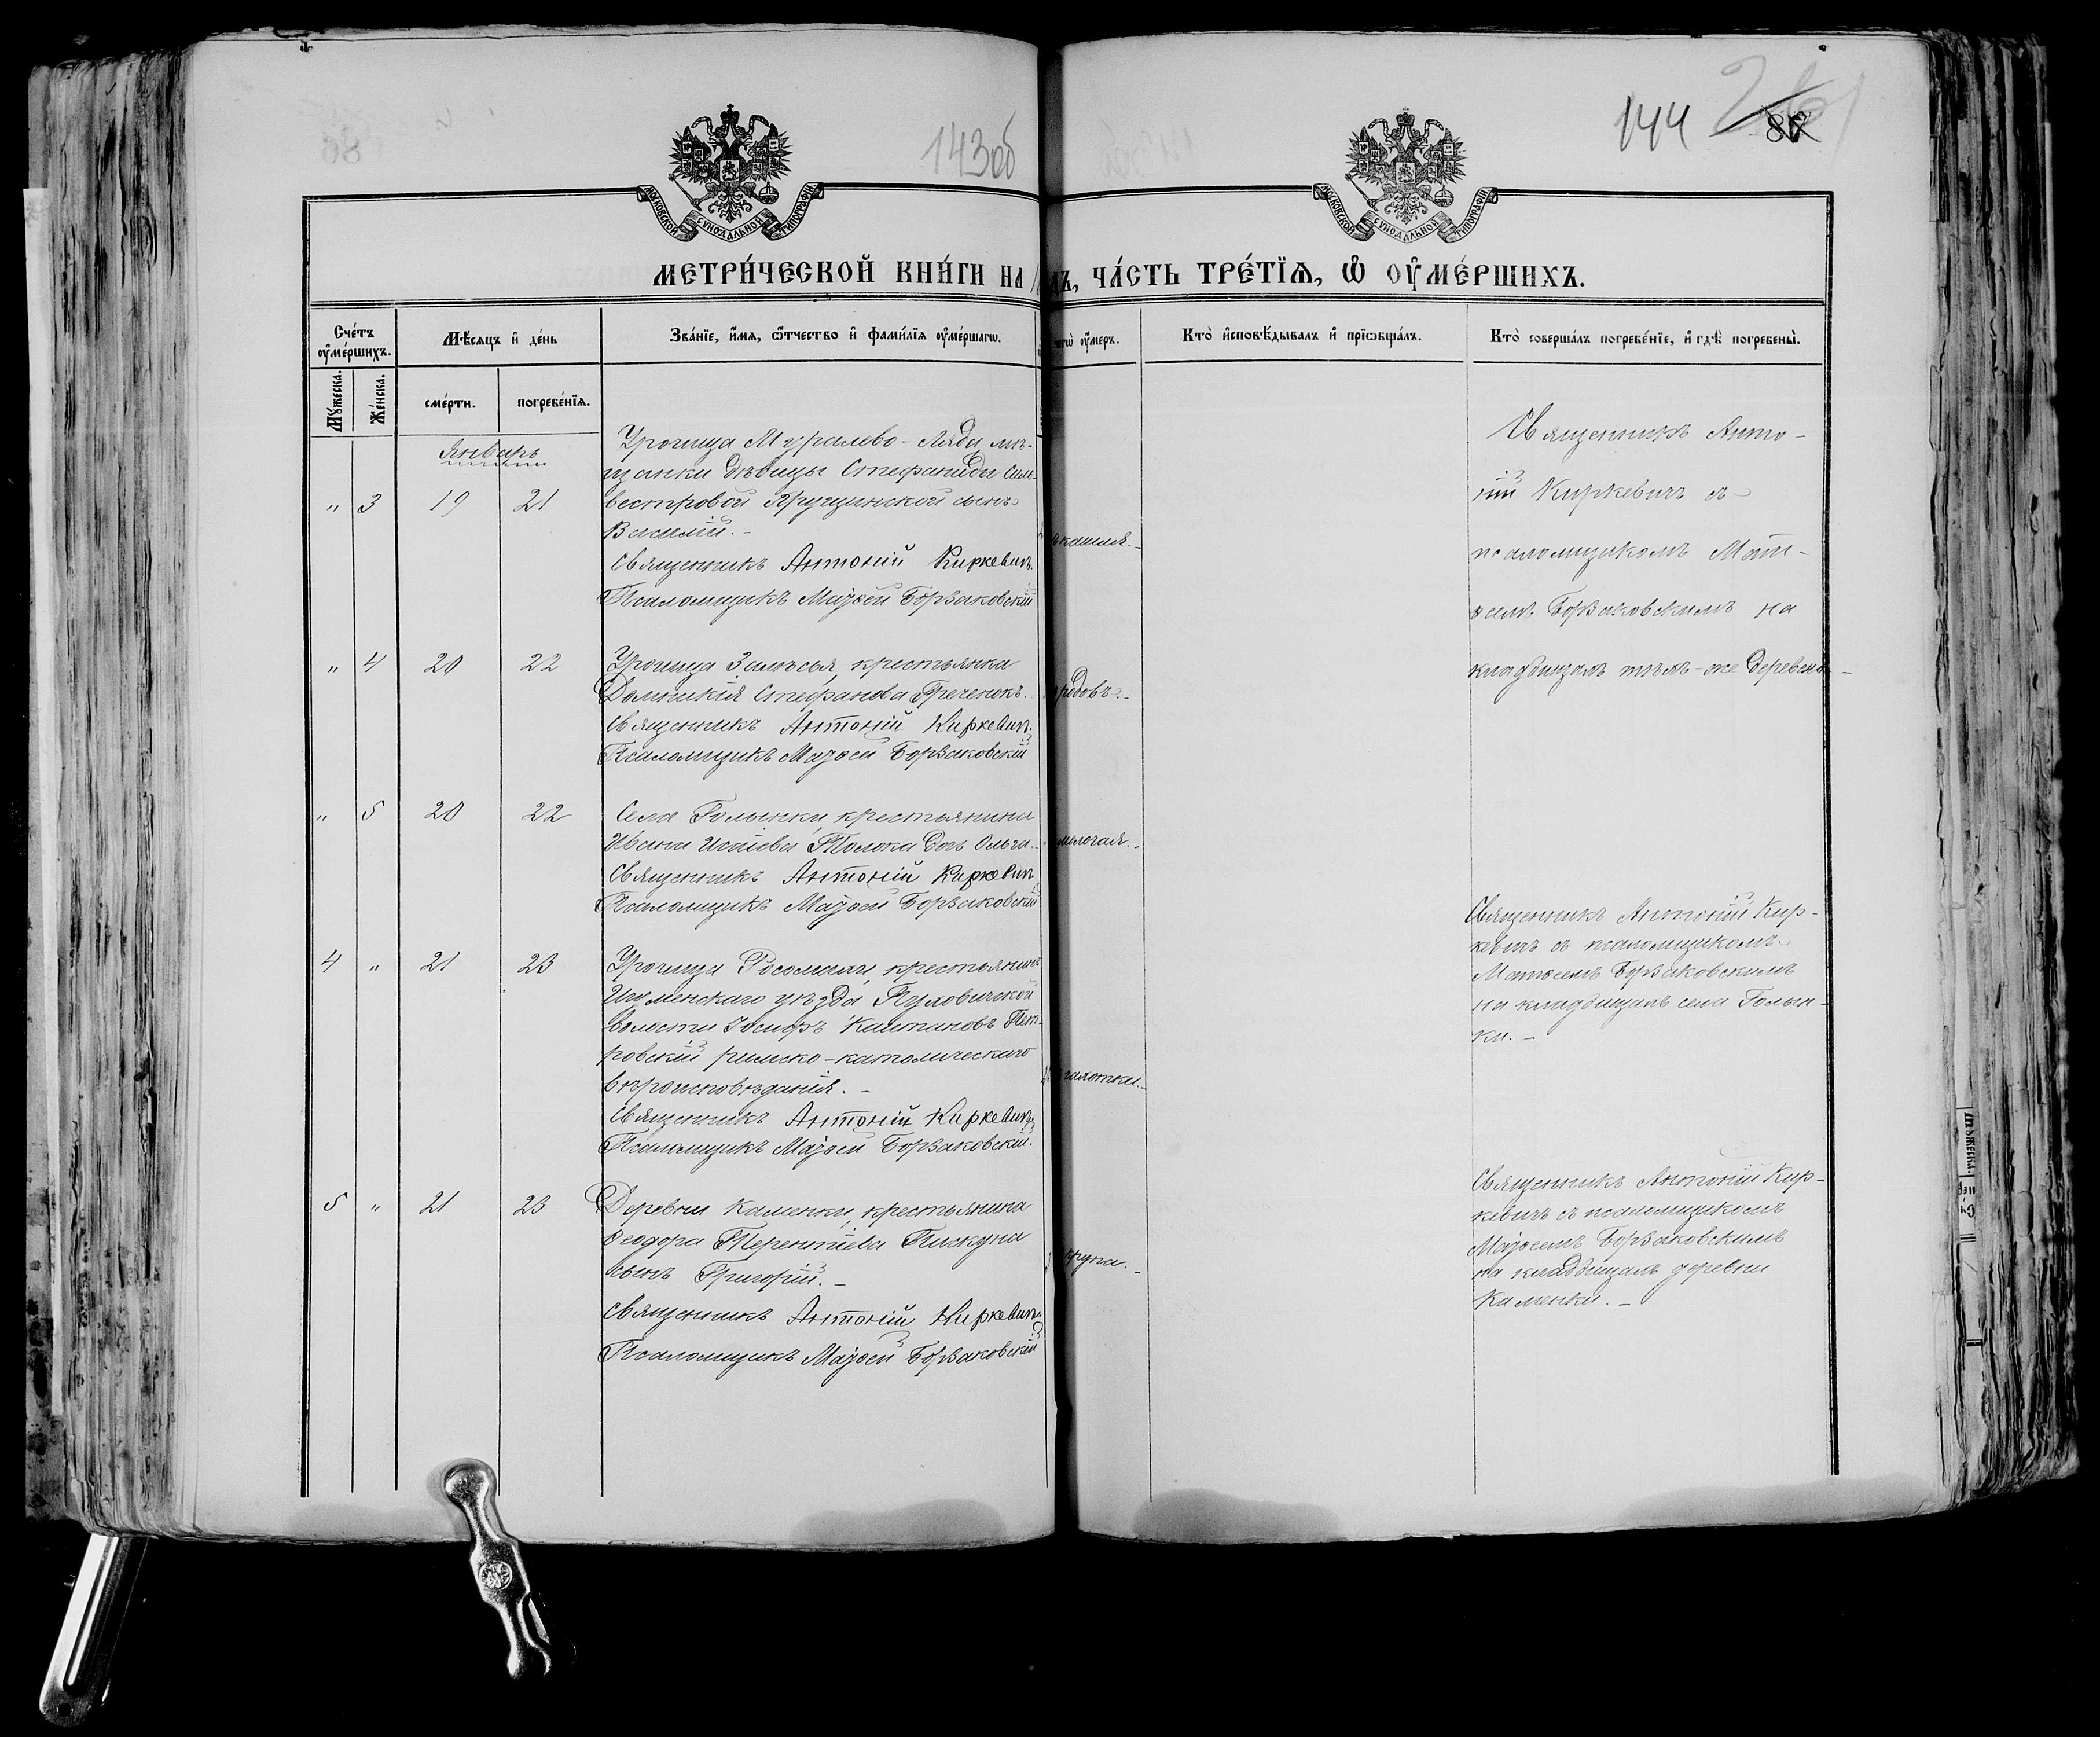 143об
144
МОСКОВСКОЙ СУНОДАЛЬНОЙ ТИПОГРАФІИ
МОСКОВСКОЙ СУНОДАЛЬНОЙ ТИПОГРАФІИ
МЕТРИ́ЧЕСКОЙ КНИ́ГИ НА ДЪ, ЧА́СТЬ ТРЕ́ТЇѦ, Ѽ ОУМЕ́РШИХЪ.
Сче́тъ оуме́ршихъ.
Мѣ́сяцъ и де́нь
Зва́нїе, и́мѧ, ѻ҆́тчество и фами́лїѧ оуме́ршагѡ.
оу́меръ.
Кто̀ исповѣ́дывалъ и прїѡбща́лъ.
Кто̀ соверша́лъ погребе́нїе, и гдѣ̀ погребены̀.
Му́жеска.
Же́нска.
сме́рти.
погребе́нїѧ.
Январь
" 3 19 21
Урочища Муралево-Ляда мѣ-
щанки дѣвицы Стефаниды Сили-
вестровой Яругцинской сынъ
Василій. -
кашля. -
Священникъ Антоній Киркевичъ
Псаломщикъ Маѳѳей Борзаковскій
Священникъ Анто-
ній Киркевичъ съ
псаломщикомъ Мат-
ѳеемъ Борзаковскимъ на
кладбищахъ тѣхъ-же деревень -
" 4 20 22
Урочища Залѣсья, крестьянка
Домникія Стефанова Греченокъ. -
родовъ. -
Священникъ Антоній Киркевичъ
Псаломщикъ Маѳѳей Борзаковскій
" 5 20 22
Села Голынки, крестьянина
Ивана Исаіева Толока дочь Ольга. -
молочая. -
Священникъ Антоній Киркевичъ
Псаломщикъ Маѳѳей Борзаковскій
4 " 21 23
Урочища Росомахи, крестьянинъ
Игуменскаго уѣзда
волости Іосифъ Пет-
ровскій римско-католическаго
вѣроисповѣданія. -
чахотки. -
Священникъ Антоній Киркевичъ
Псаломщикъ Маѳѳей Борзаковскій.
Священникъ Антоній Кир-
кевичъ съ псаломщикомъ
Матѳеемъ Борзаковскимъ
на кладбищахъ села Голын-
ки. -
5 " 21 23
Деревни Каменки, крестьянина
Ѳеодора Терентіева Пискуна
сынъ Григорій. -
крупа. -
Священникъ Антоній Киркевичъ
Псаломщикъ Маѳѳей Борзаковскій
Священникъ Антоній Кир-
кевичъ съ псаломщикомъ
Маѳѳеемъ Борзаковскимъ
на кладбищахъ деревни
Каменки. -